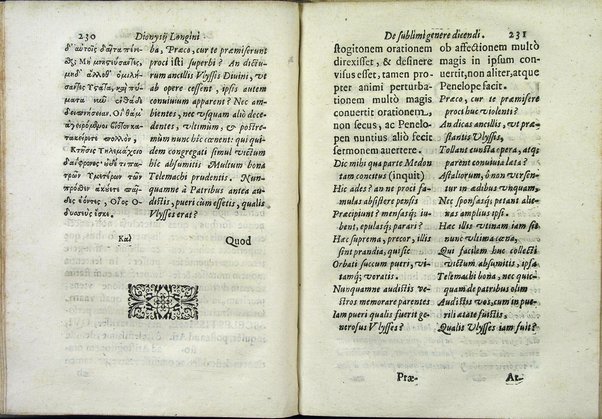 230
Dionysij Longini
δ' αὐτοῖς δαῖτα πένε-
σθαι; Μὴ μνηστεύσαντες,
μηδ' ἄλλοθ' ὁμιλή-
σαντες Ὕστατα, καὶ πύ-
ματα νῦν ἐνθάδε
δειπνήσειαν. Οἳ θάμ'
ἀγειρόμενοι βίοτον κα-
τακείρετε πολλὸν,
Κτῆσιν Τηλεμάχοιο
δαΐφρονος, οὐδέ τι πα-
τρῶν Ὑμετέρων τῶν
πρόσθεν ἀκούετε παῖ-
δες ἐόντες, Οἷος Ὀ-
δυσσεὺς ἔσκε.
Καὶ
ba, Præco, cur te præmiserunt
proci isti superbi? An dictu-
rum ancillis Vlyssis Diuini, vt
ab opere cessent, ipsis autem
conuiuium apparent? Nec am-
bientes, nec vsquam aliò dece-
dentes, vltimum, & postre-
mùm nunc hîc cœnent: qui qui-
dem congregati simul victum
hîc absumitis Multum bona
Telemachi prudentis. Nun-
quamne à Patribus antea au-
distis, pueri cùm essetis, qualis
Vlysses erat?
Quod
De sublimi genere dicendi.
231
stogitonem orationem
direxisset, & desinere
visus esset, tamen pro
pter animi perturba-
tionem multò magis
conuertit orationem,
non secus, ac Penelo-
pen nuntius aliò secit
sermonem auertere.
Dic mihi qua parte Medon
tam concitus (inquit)
Hic ades? an ne proci fa-
mulas absistere pensis
Præcipiunt? mensasq́; iu-
bent, epulasq́; parari?
Hæc suprema, precor, illis
sint prandia, quisic
Orbati succum pueri, vi-
tamq́; voratis.
Nunquamne audistis ve-
stros memorare parentes
Iam pueri qualis fuerit ge-
nerosus Vlysses?
Præ-
ob affectionem multò
magis in ipsum con-
uertit, non aliter, atque
Penelope facit.
Præco, cur te præmisere
proci huc violenti?
An dicas ancillis, vt præ-
stantis Vlyssis,
Tollant cuncta opera, atque
parent conuiuia lata?
Assaliorum, ô non versen-
tur in ædibus vnquam,
Nec sponsasq́; petant alie-
nas amplius ipsi.
Hæc illis vtinam iam sit
nunc vltima cœna,
Qui facilem hunc collecti
victum absumitis, ipsa
Telemachi bona, nec quic-
quam de patribus olim
Audistis vos, cum in pue-
rili ætate fuistis,
Qualis Vlysses iam fuit?
At.